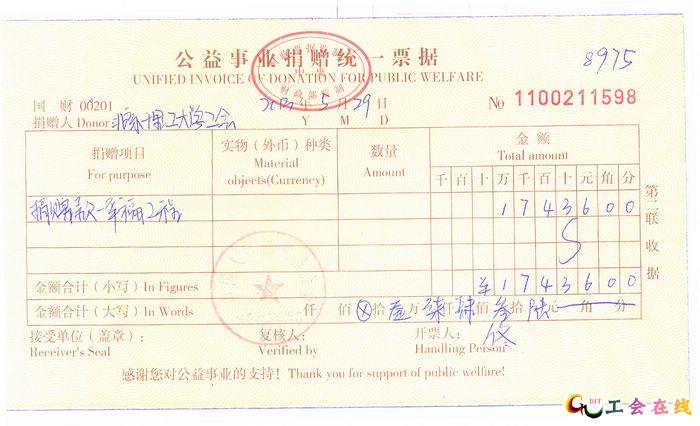 8975
公益事业捐赠统一票据
UNIFIED INVOICE OF DONATION FOR PUBLIC WELFARE
财政部监制
国 财 00201
年5月29日
No 1100211598
捐赠人 Donor: 北京理工大学工会
Y M D
捐赠项目 实物（外币）种类 数量 金额
For purpose Material objects(Currency) Amount Total amount
千 百 十 万 千 百 十 元 角 分
捐赠款—幸福工程 1 7 4 3 6 0 0
第二联 收据
金额合计（小写）In Figures ¥ 1 7 4 3 6 0 0
金额合计（大写）In Words 仟 佰 ⊗ 拾 壹 万 柒 仟 肆 佰 叁 拾 陆 元 角 分
接受单位（盖章）： 复核人： 开票人：
Receiver's Seal Verified by Handling Person
感谢您对公益事业的支持！Thank you for support of public welfare!
BIT 工会在线